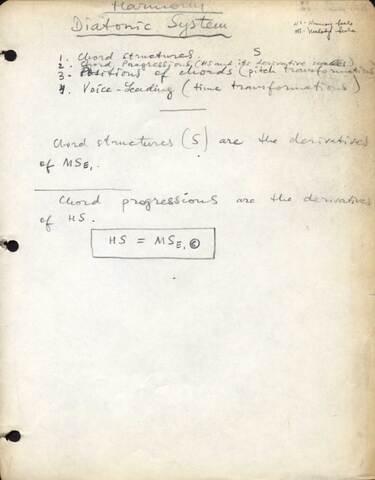 Harmony
Diatonic System
HS - Harmony Scale
MS - Melody Scale
1. Chord structures. S
2. Chord Progressions (HS and its derivative scales)
3. Positions of chords (pitch transformations)
4. Voice-Leading (time transformations)
Chord structures (S) are the derivatives
of MSE₁.
Chord progressions are the derivatives
of HS.
HS = MSE₁ ©